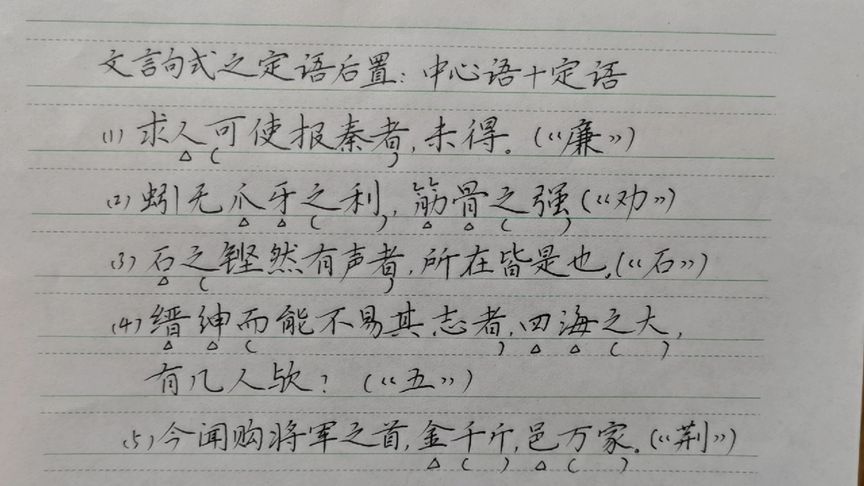 文言句式之定语后置：中心语+定语
(1) 求人可使报秦者，未得。(《廉》)
(2) 蚓无爪牙之利，筋骨之强(《劝》)
(3) 石之铿然有声者，所在皆是也。(《石》)
(4) 缙绅而能不易其志者，四海之大，
有几人欤？(《五》)
(5) 今闻购将军之首，金千斤，邑万家。(《荆》)